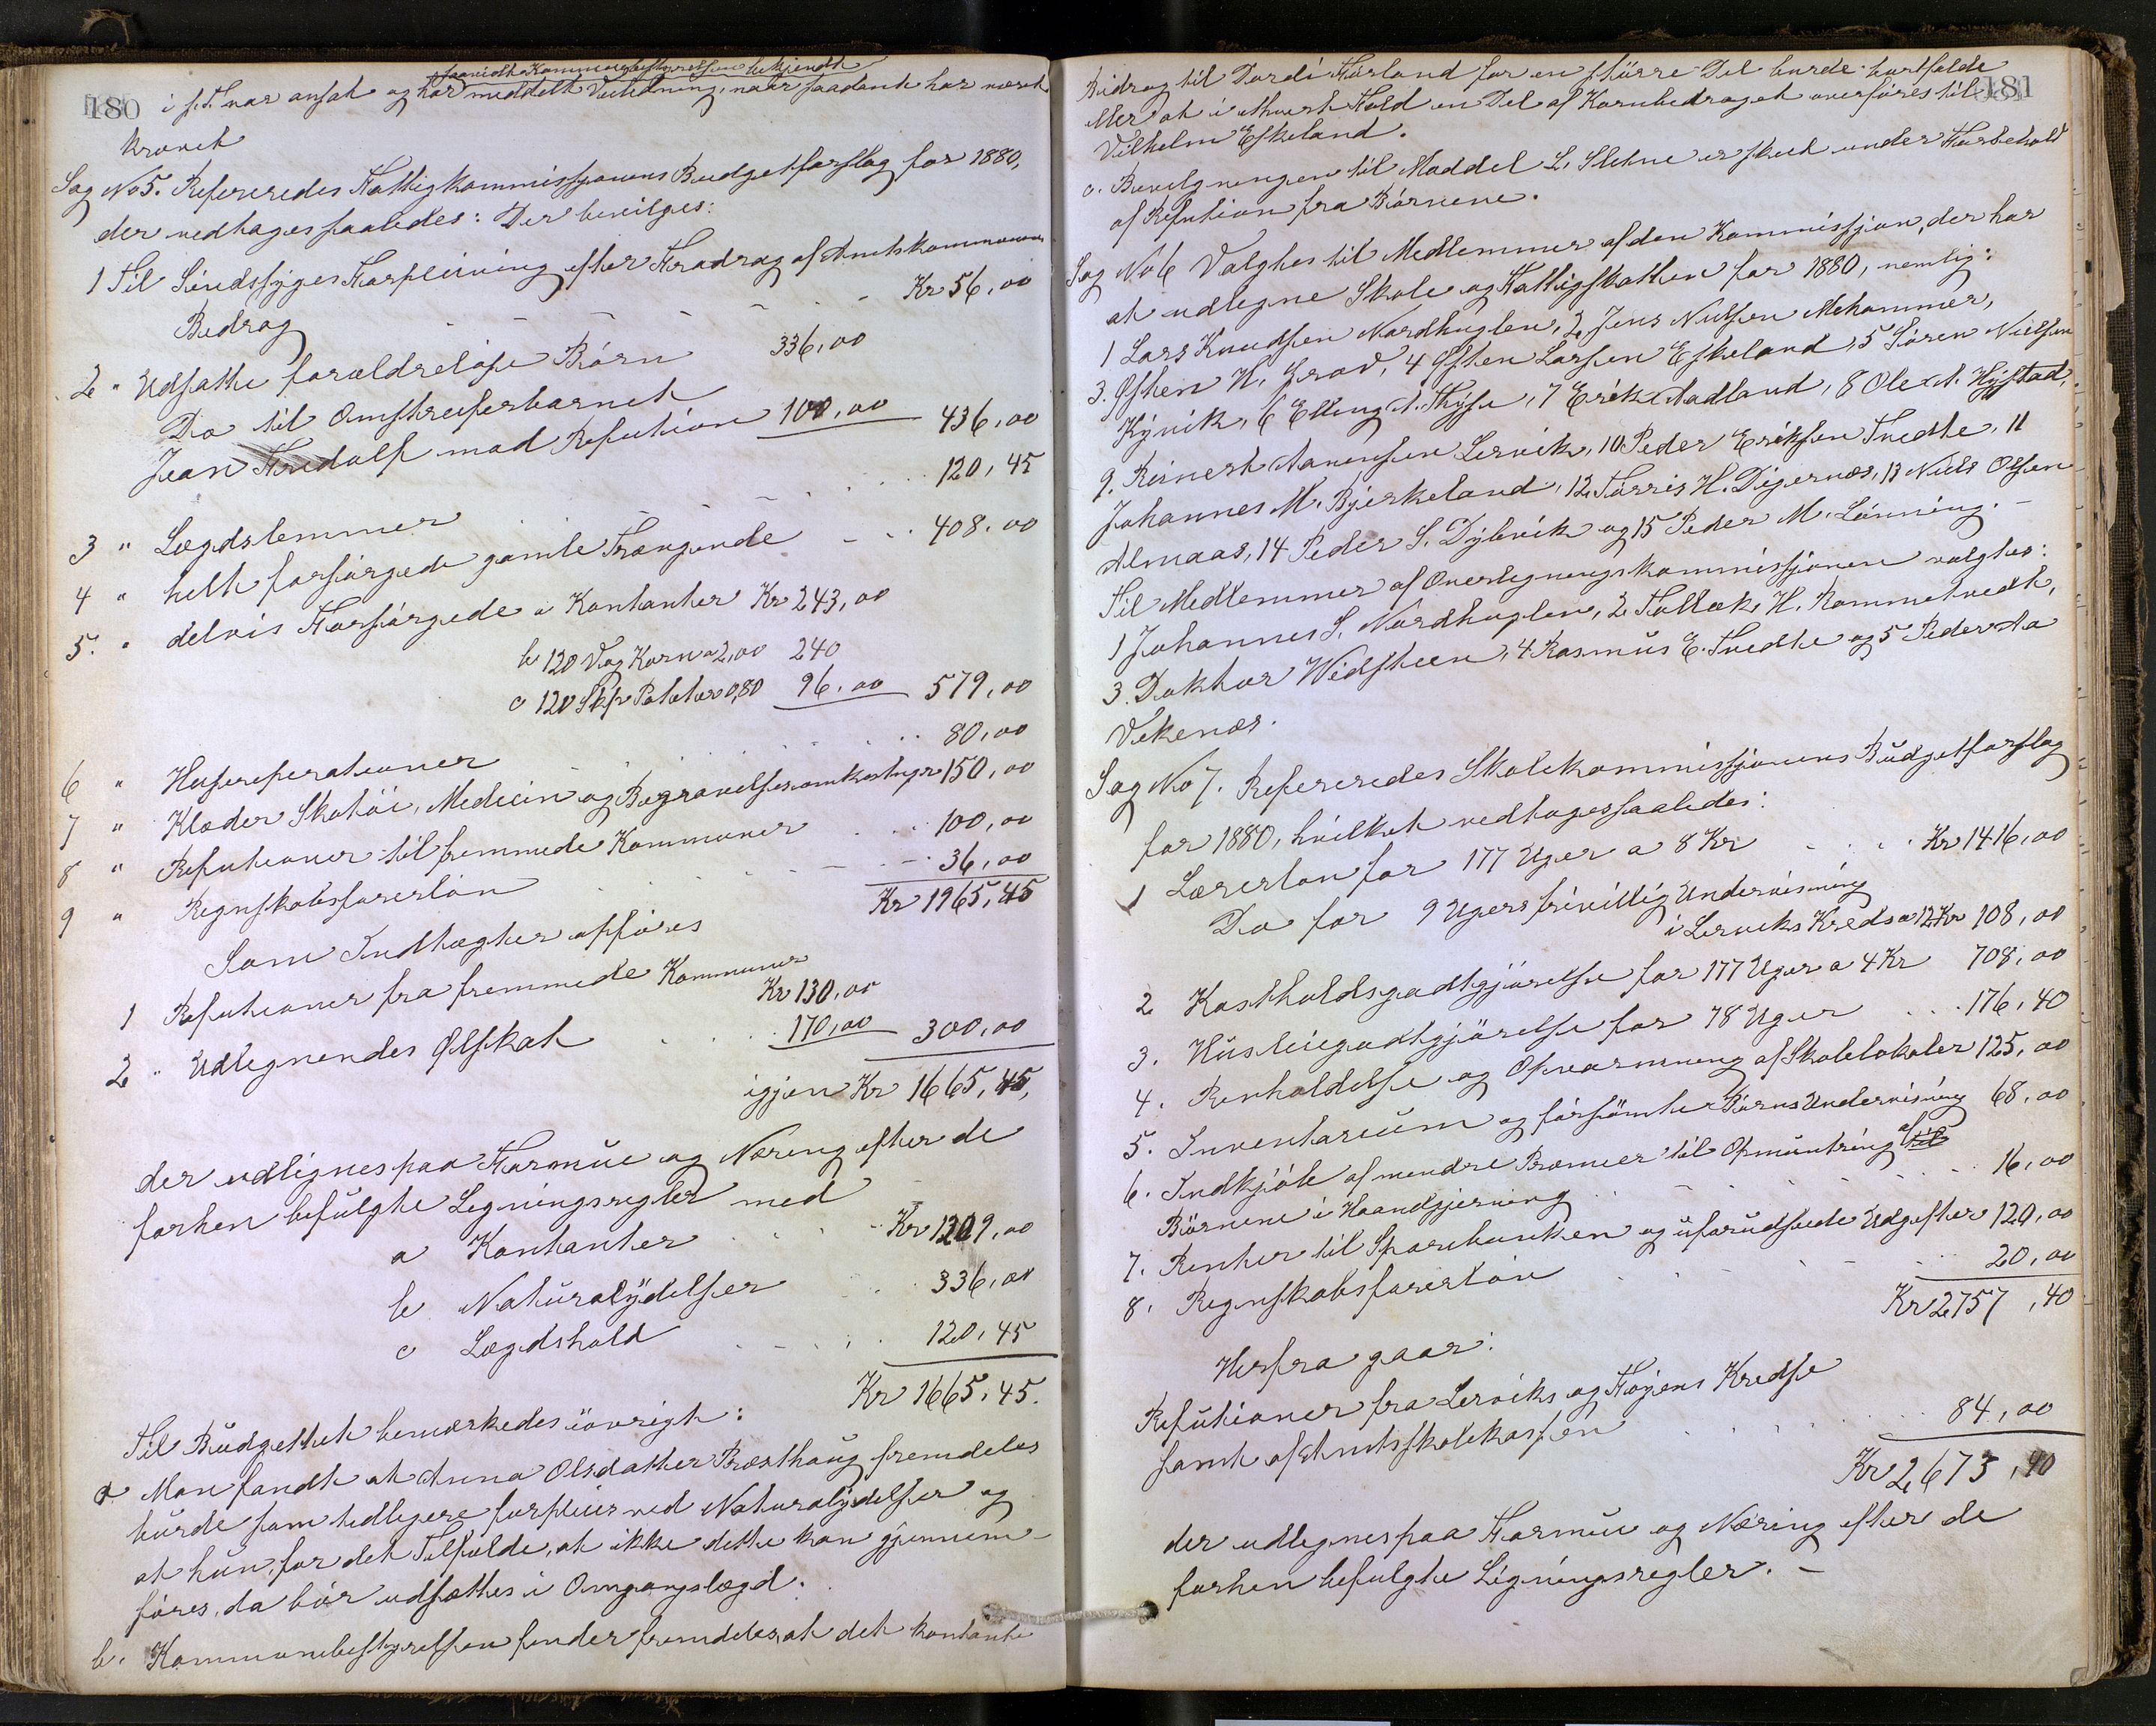 180
saavidt Kommunebestyrelsen bekjendt
i s. T. var ansat og har meddelt Veiledning, naar saadant har været
krævet
Sag No 5. Refereredes Fattigkommissjonens Budgetforslag for 1880,
der vedtages saaledes: Der bevilges:
1 Til Sindssyges Forpleining efter Fradrag af Amtskommunens
Bidrag - - - - - Kr 56,00
2 " Udsatte forældreløse Børn 336,00
Do til Omstreiferbarnet
Jean Fredolf mod Refution 100,00 436,00
3 " Lægdslemmer . . . . 120,45
4 " helt forsørgede gamle Trængende - - . 408,00
5. " delvis Forsørgede a Kontanter Kr 243,00
b 120 Vog Korn a 2,00 240
c 120 Skp Poteter 0,80 96,00 579,00
6 " Husreperationer . . . . 80,00
7 " Klæder Skotøi, Medicin og Begravelsesomkostninger 150,00
8 " Refutioner til fremmede Kommuner . . . 100,00
9 " Regnskabsførerløn . . . - - - 36,00
Kr 1965,45
Som Indtægter opføres
1 Refutioner fra fremmede Kommuner
Kr 130,00
2 " Udlignendes Ølskat . . . 170,00 300,00
igjen Kr 1665,45,
der udlignes paa Formue og Næring efter de
forhen befulgte Ligningsregler med
a Kontanter . . . . Kr 1209,00
b Naturalydelser . . 336,00
c Lægdshold . - - . . 120,45
Kr 1665,45.
Til Budgettet bemærkedes iøvrigt:
a Man fandt at Anna Olsdatter Præsthaug fremdeles
burde som tidligere forpleies ved Naturalydelser og
at hun, for det Tilfælde, at ikke dette kan gjennem-
føres, da bør udsættes i Omgangslægd.
b. Kommunebestyrelsen finder fremdeles, at det kontante
181
Bidrag til Dordi Førland for en større Del burde bortfalde
eller at i ethvert Fald en Del af Kornbidraget overføres til
Vilhelm Eskeland.
c. Bevilgningen til Maddel L. Sletne er skeet under Forbehold
af Refution fra Børnene.
Sag No 6 Valgtes til Medlemmer af den Kommissjon, der har
at udligne Skole og Fattigskatten for 1880, nemlig:
1 Lars Knudsen Nordhuglen, 2 Jens Nilssen Mehammer,
3. Østen H. Grov, 4 Østen Larsen Eskeland, 5 Søren Nielsen
Kyvik, 6 Elling A. Thyse, 7 Erik Aadland, 8 Ole A. Hystad,
9. Reinert Aanensen Lervik, 10 Peder Eriksen Tvedte, 11
Johannes M. Bjerkeland, 12 Tørris H. Digernæs, 13 Niels Olsen
Almaas, 14 Peder S. Dybvik og 15 Peder M. Lønning. -
Til Medlemmer af Overligningskommissjonen valgtes:
1 Johannes S. Nordhuglen, 2 Tollæk H. Rommetvedt,
3. Doktor Widsteen, 4 Rasmus E. Tvedte og 5 Peder Aa
Vikenæs.
Sag No 7. Refereredes Skolekommissjonens Budgetforslag
for 1880, hvilket vedtages saaledes:
1 Lærerløn for 177 Uger a 8 Kr - . . . Kr 1416,00
Do for 9 Ugers frivillig Undervisning
i Lerviks Kreds a 12 Kr 108,00
2 Kostholdsgodtgjørelse for 177 Uger a 4 Kr 708,00
3. Husleiegodtgjørelse for 78 Uger . . . 176,40
4. Renholdelse og Opvarmning af Skolelokaler 125,00
5. Inventarium og forsømte Børns Undervisning 68,00
6. Indkjøb af mindre Præmier til Opmuntring af til
Børnene i Haandgjerning . . - - . . . . 16,00
7. Renter til Sparebanken og uforudseede Udgifter 120,00
8. Regnskabsførerløn . . . - - . . 20,00
Kr 2757,40
Herfra gaar:
Refutioner fra Lerviks og Føyens Kredse
samt af Amtsskolekassen . . . . . 84,00
Kr 2,673,40
der udlignes paa Formue og Næring efter de
forhen befulgte Ligningsregler. -